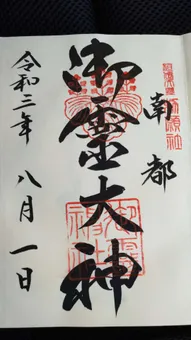 南都
御霊大神
令和三年 八月 一日
御霊神社